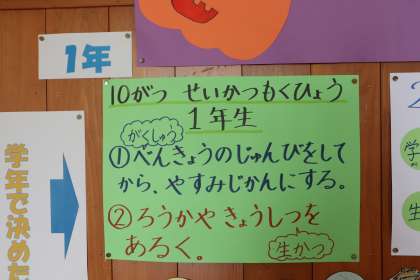 1年
10がつ せいかつもくひょう
1年生
がくしゅう
①べんきょうのじゅんびをして
から、やすみじかんにする。
②ろうかやきょうしつを
あるく。
生かつ
学年で決めた
2
学
生